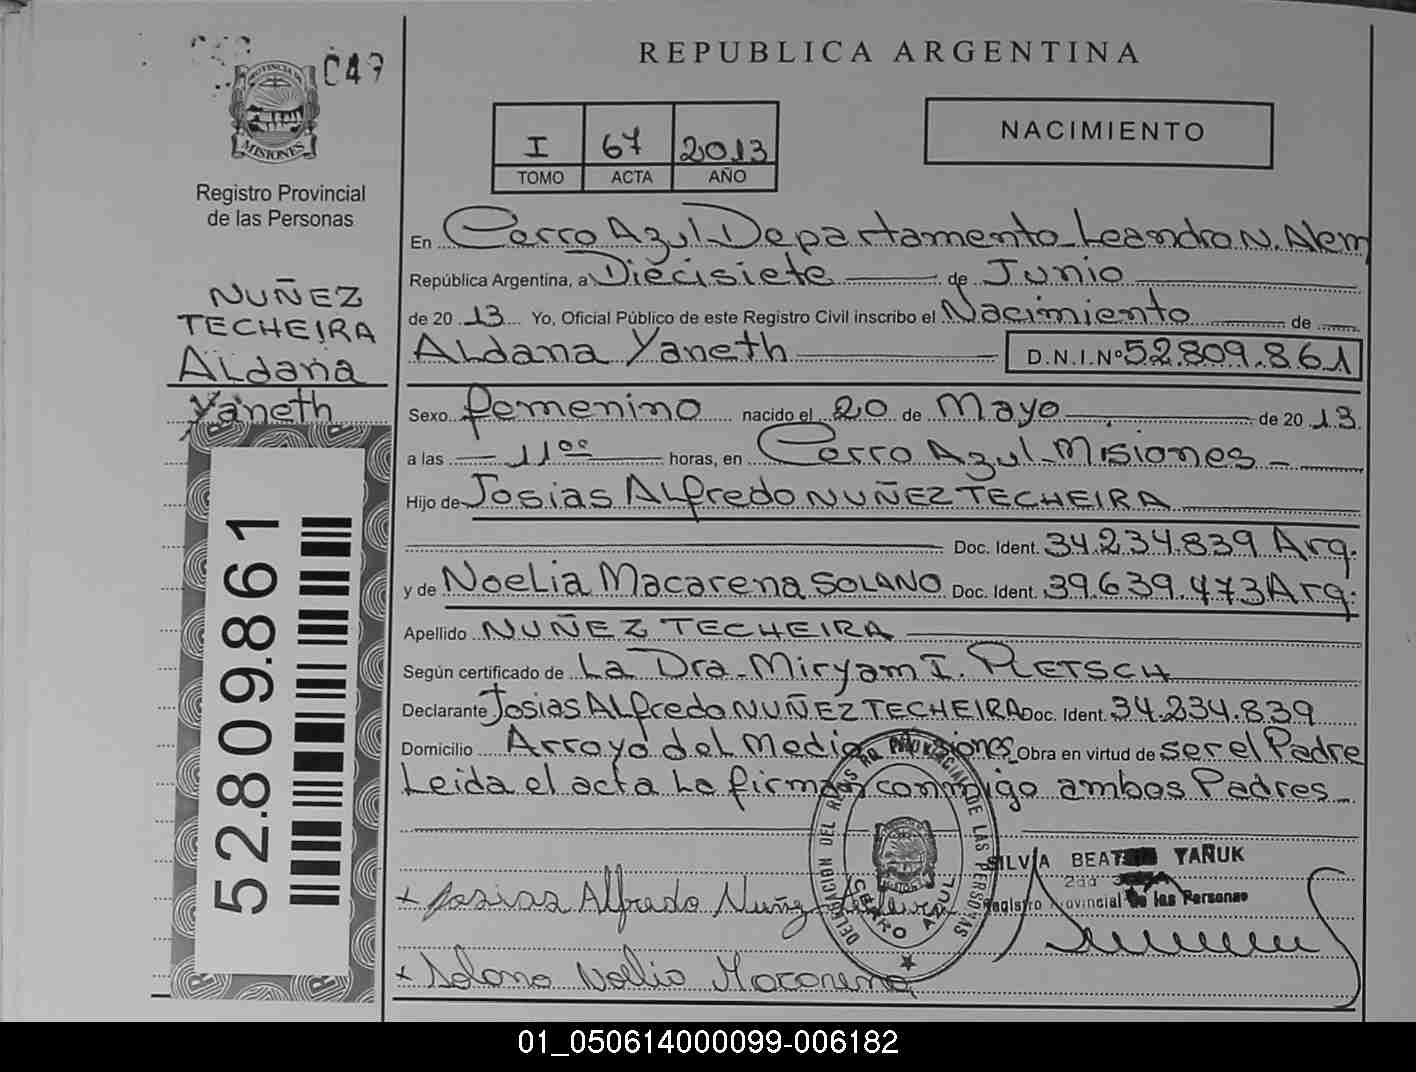 049
PROVINCIA DE
MISIONES
Registro Provincial
de las Personas
NUÑEZ
TECHEIRA
ALdana
Yaneth
52.809.861
REPUBLICA ARGENTINA
I 67 2013
TOMO ACTA AÑO
NACIMIENTO
En Cerro Azul - Departamento Leandro N. Alem
República Argentina, a Diecisiete de Junio
de 2013 Yo, Oficial Público de este Registro Civil inscribo el Nacimiento de
ALdana Yaneth D.N.I.Nº 52.809.861
Sexo Femenino nacido el 20 de Mayo de 2013
a las 11 00 horas, en Cerro Azul - Misiones -
Hijo de Josias ALfredo NUÑEZ TECHEIRA
Doc. Ident. 34.234.839 Arg.
y de NoeLia Macarena SOLANO Doc. Ident. 39.639.473 Arg.
Apellido NUÑEZ TECHEIRA
Según certificado de La Dra. Miryam I. PLETSCH
Declarante Josias ALfredo NUÑEZ TECHEIRA Doc. Ident. 34.234.839
Domicilio Arroyo del Medio Misiones Obra en virtud de ser el Padre
Leida el acta La firman conmigo ambos Padres -
DELEGACION DEL REGISTRO PROVINCIAL DE LAS PERSONAS
CERRO AZUL
SILVIA BEATRIZ YAÑUK
Registro Provincial de las Personas
+ Josias Alfredo Nuñez Techeira
+ Solano Noelia Macarena
01_050614000099-006182